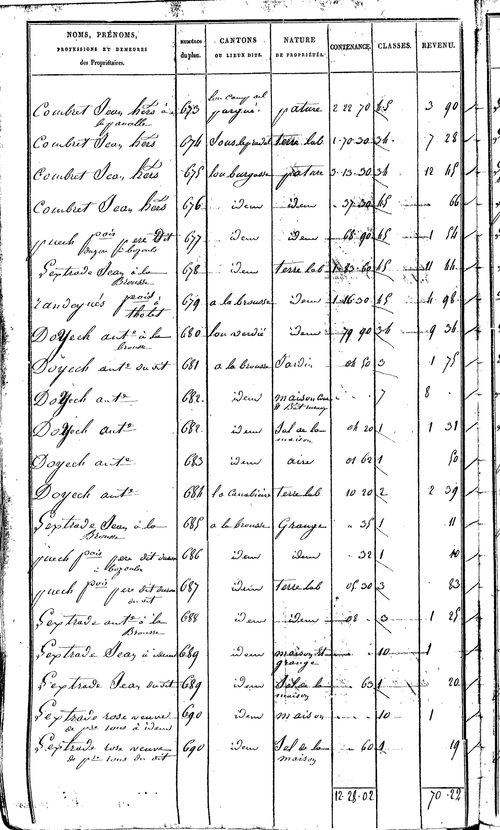 NOMS, PRÉNOMS, PROFESSIONS ET DEMEURES des Propriétaires. NUMÉROS du plan. CANTONS OU LIEUX DITS. NATURE DE PROPRIÉTÉS. CONTENANCE. CLASSES. REVENU.
Combret Jean hérs à 673 pature 2 22 70 3 90
Combret Jean hérs 674 terre lab 1 70 30 34 7 28
Combret Jean hérs 675 lou burgasse pature 3 13 30 34 12 45
Combret Jean hérs 676 idem idem 37 30 45 66
puech pois pere dit 677 idem idem 68 90 45 1 54
Gextrade Jean à la Brousse 678 idem terre lab 1 83 60 45 11 44
pois à 679 a la brousse idem 1 16 30 45 4 98
Doyech ante à la brousse 680 idem 79 90 34 9 36
Doyech ante du dit 681 a la brousse Jardin 04 50 3 1 75
Doyech ante 682 idem maison 7 8
Doyech ante 682 idem Sol de la maison 04 20 1 1 31
Doyech ante 683 idem aire 01 62 1 50
Doyech ante 684 terre lab 10 20 2 2 39
Gextrade Jean à la Brousse 685 a la brousse Grange 35 1 11
puech pois pere dit 686 idem idem 32 1 10
puech pois pere dit du dit 687 idem terre lab 05 30 3 83
Gextrade ante à la Brousse 688 idem idem 08 3 1 25
Gextrade Jean à idem 689 idem maison et grange 10 1
Gextrade Jean du dit 689 idem Sol de la maison 65 1 20
Gextrade rose veuve à idem 690 idem maison 10 1
Gextrade rose veuve du dit 690 idem Sol de la maison 60 1 19
12 28 02 70 22